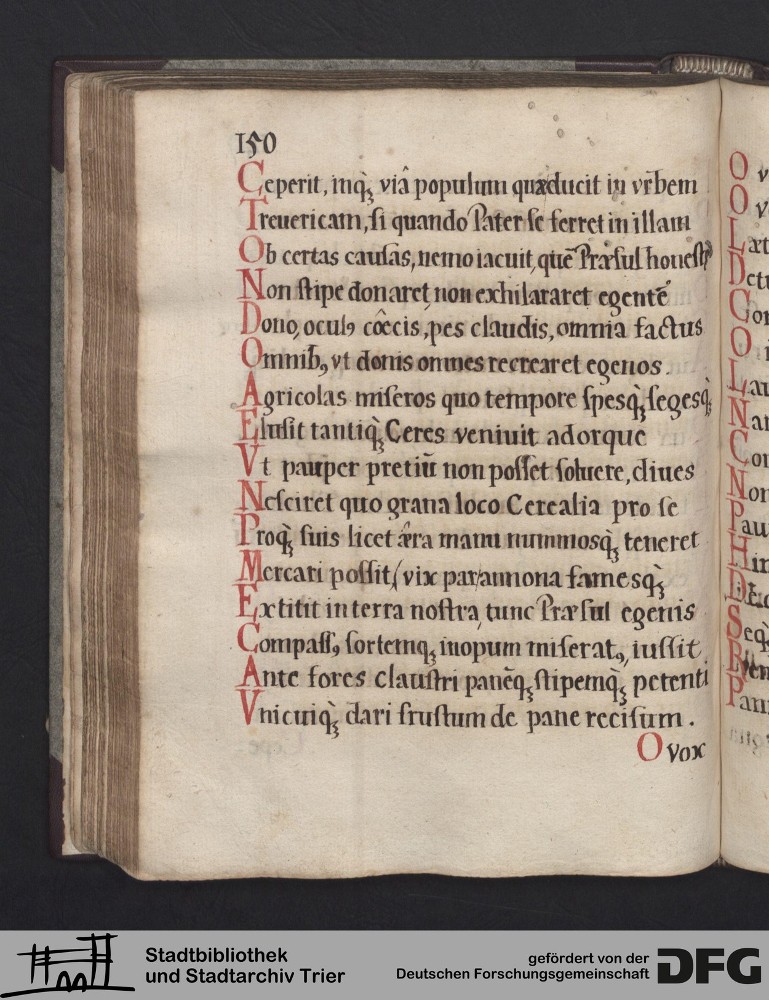 150
Ceperit, inq́ꝫ viâ populum quæducit in vrbem
Treuericam, si quando Pater se ferret in illam
Ob certas causas, nemo iacuit, quē Præsul honestꝰ
Non stipe donaret, non exhilararet egentē
Dono, oculꝰ cœ̂cis, pes claudis, omnia factus
Omnibꝰ, vt donis omnes recrearet egenos.
Agricolas miseros quo tempore spesq́ꝫ, segesq́ꝫ
Elusit tantiq́ꝫ Ceres veniuit adorque
Vt pauper pretiū non posset soluere, diues
Nesciret quo grana loco Cerealia pro se
Proq́ꝫ suis licet æ̂ra manu nummosq́ꝫ teneret
Mercari possit, (vix par annona famesq́ꝫ
Extitit in terra nostra, tunc Præsul egenis
Compassꝰ, sortemqꝫ inopum miseratꝰ, iussit
Ante fores claustri panēqꝫ, stipemq́ꝫ petenti
Vnicuiq́ꝫ dari frustum de pane recisum.
O vox
O v
O v
Læt
Detu
Cor
O i
Lau
Nar
Cor
Non
Pau
Hin
Seq́
Pan
Stadtbibliothek
und Stadtarchiv Trier
gefördert von der
Deutschen Forschungsgemeinschaft
DFG